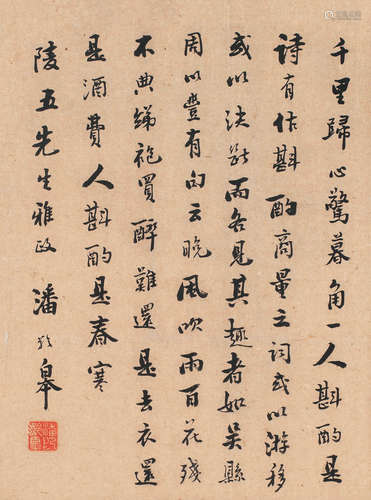 千里歸心驚暮角一人斟酌是
詩有作斟酌商量立詞或以游移
或以決斷而各見其趣者如吳縣
周以豐有句云晚風吹雨百花殘
不典綈袍買醉難還是去衣還
是酒費人斟酌是春寒
陵五先生雅政 潘齡皋